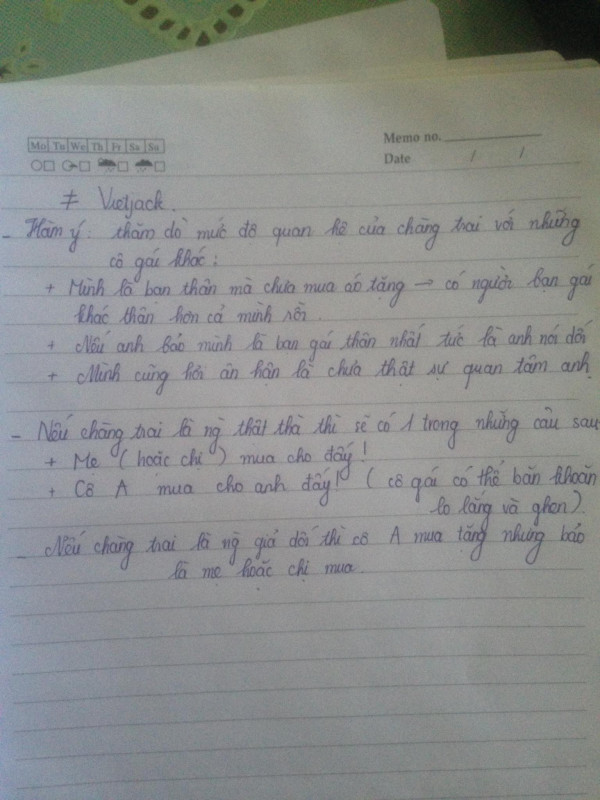 Mo Tu We Th Fr Sa Su
Memo no.
Date / /
≠ Vietjack.
- Hàm ý: thăm dò mức độ quan hệ của chàng trai với những
cô gái khác:
+ Mình là bạn thân mà chưa mua áo tặng → có người bạn gái
khác thân hơn cả mình rồi.
+ Nếu anh bảo mình là bạn gái thân nhất tức là anh nói dối
+ Mình cũng hơi ân hận là chưa thật sự quan tâm anh.
- Nếu chàng trai là ng thật thà thì sẽ có 1 trong những câu sau
+ Mẹ (hoặc chị) mua cho đấy!
+ Cô A mua cho anh đấy! (cô gái có thể băn khoăn
lo lắng và ghen).
- Nếu chàng trai là ng giả dối thì cô A mua tặng nhưng bảo
là mẹ hoặc chị mua.